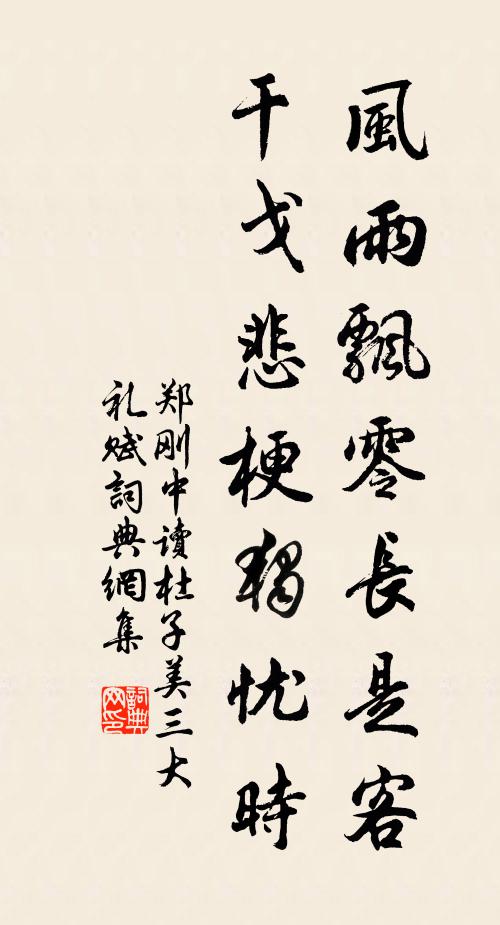 風雨飄零長是客
干戈悲梗獨忧時
郑刚中读杜子美三大
礼赋詞典網集
詞典网印